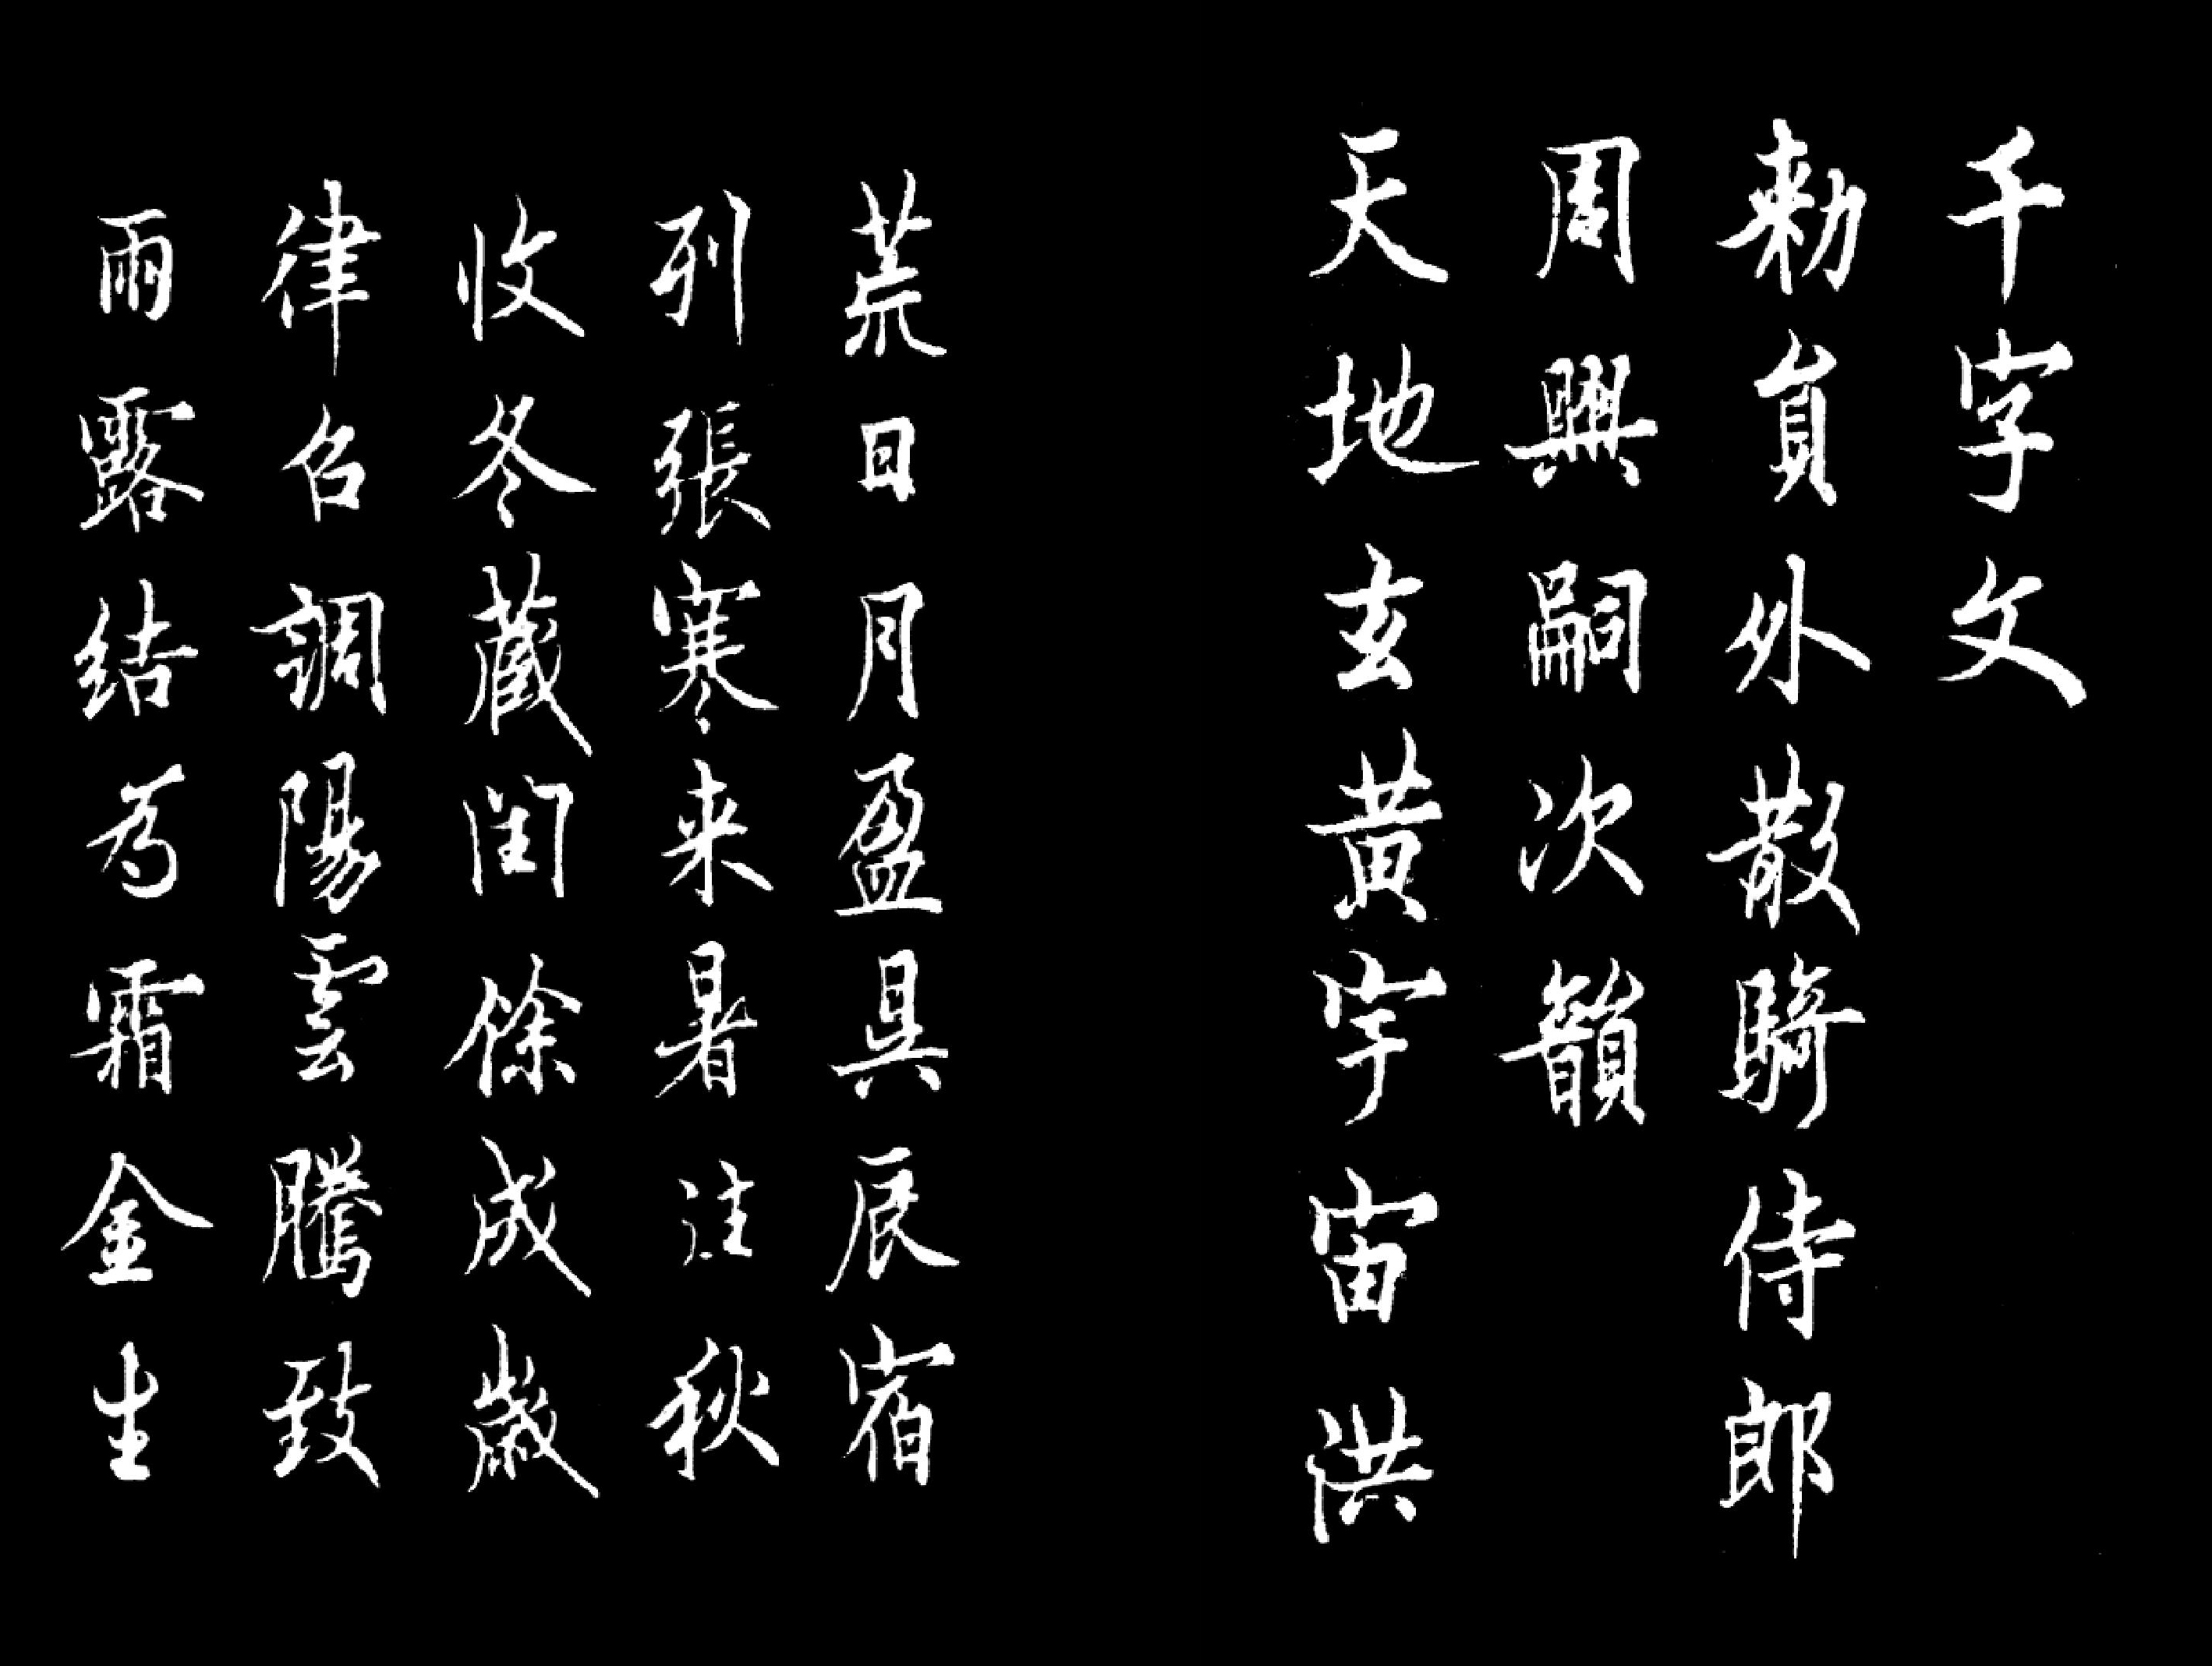 千字文
勅員外散騎侍郎
周興嗣次韻
天地玄黃宇宙洪
荒日月盈昃辰宿
列張寒来暑往秋
收冬藏閏餘成歲
律召調陽雲騰致
雨露結為霜金生